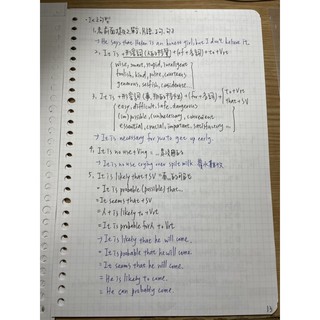 It 之句型
1. 代
→ He says that Helen is an honest girl, but I don't believe it.
2. It is + 形容詞 + (of + 受詞) + to + Vrt
wise, smart, stupid, intelligent
foolish, kind, polite, courteous
generous, selfish, considerate
3. It is + 形容詞 + (for + 受詞) + to + Vrt
that + SV
easy, difficult, safe, dangerous
(im)possible, (un)necessary, convenient
essential, crucial, important, satisfactory...
→ It is necessary for you to get up early.
4. It is no use + Ving = ...是沒用的
→ It is no use crying over spilt milk. 覆水難收
5. It is likely that + SV = 可能
= It is probable (possible) that...
= It seems that + SV
= 人 + is likely to + Vrt
= It is probable for 人 to Vrt
→ It is likely that he will come.
= It is probable that he will come.
= It seems that he will come.
= He is likely to come.
= He can probably come.
13